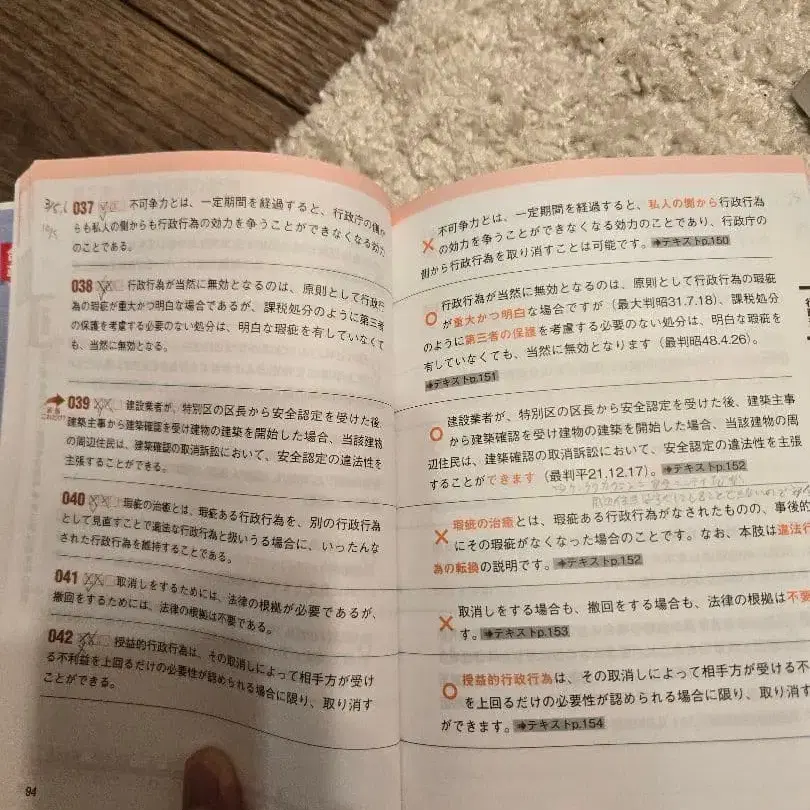 037 不可争力とは、一定期間を経過すると、行政庁の側か
らも私人の側からも行政行為の効力を争うことができなくなる効力
のことである。
038 行政行為が当然に無効となるのは、原則として行政行
為の瑕疵が重大かつ明白な場合であるが、課税処分のように第三者
の保護を考慮する必要のない処分は、明白な瑕疵を有していなくて
も、当然に無効となる。
039 建設業者が、特別区の区長から安全認定を受けた後、
建築主事から建築確認を受け建物の建築を開始した場合、当該建物
の周辺住民は、建築確認の取消訴訟において、安全認定の違法性を
主張することができる。
040 瑕疵の治癒とは、瑕疵ある行政行為を、別の行政行為
として見直すことで適法な行政行為と扱いうる場合に、いったんな
された行政行為を維持することである。
041 取消しをするためには、法律の根拠が必要であるが、
撤回をするためには、法律の根拠は不要である。
042 授益的行政行為は、その取消しによって相手方が受け
る不利益を上回るだけの必要性が認められる場合に限り、取り消す
ことができる。
94
× 不可争力とは、一定期間を経過すると、私人の側から行政行為
の効力を争うことができなくなる効力のことであり、行政庁の
側から行政行為を取り消すことは可能です。➔テキストp.150
○ 行政行為が当然に無効となるのは、原則として行政行為の瑕疵
が重大かつ明白な場合ですが(最大判昭31.7.18)、課税処分
のように第三者の保護を考慮する必要のない処分は、明白な瑕疵を
有していなくても、当然に無効となります(最判昭48.4.26)。
➔テキストp.151
○ 建設業者が、特別区の区長から安全認定を受けた後、建築主事
から建築確認を受け建物の建築を開始した場合、当該建物の周
辺住民は、建築確認の取消訴訟において、安全認定の違法性を主張
することができます(最判平21.12.17)。➔テキストp.152
× 瑕疵の治癒とは、瑕疵ある行政行為がなされたものの、事後的
にその瑕疵がなくなった場合のことです。なお、本肢は違法行
為の転換の説明です。➔テキストp.152
× 取消しをする場合も、撤回をする場合も、法律の根拠は不要
す。➔テキストp.153
○ 授益的行政行為は、その取消しによって相手方が受ける不
を上回るだけの必要性が認められる場合に限り、取り消す
ができます。➔テキストp.154